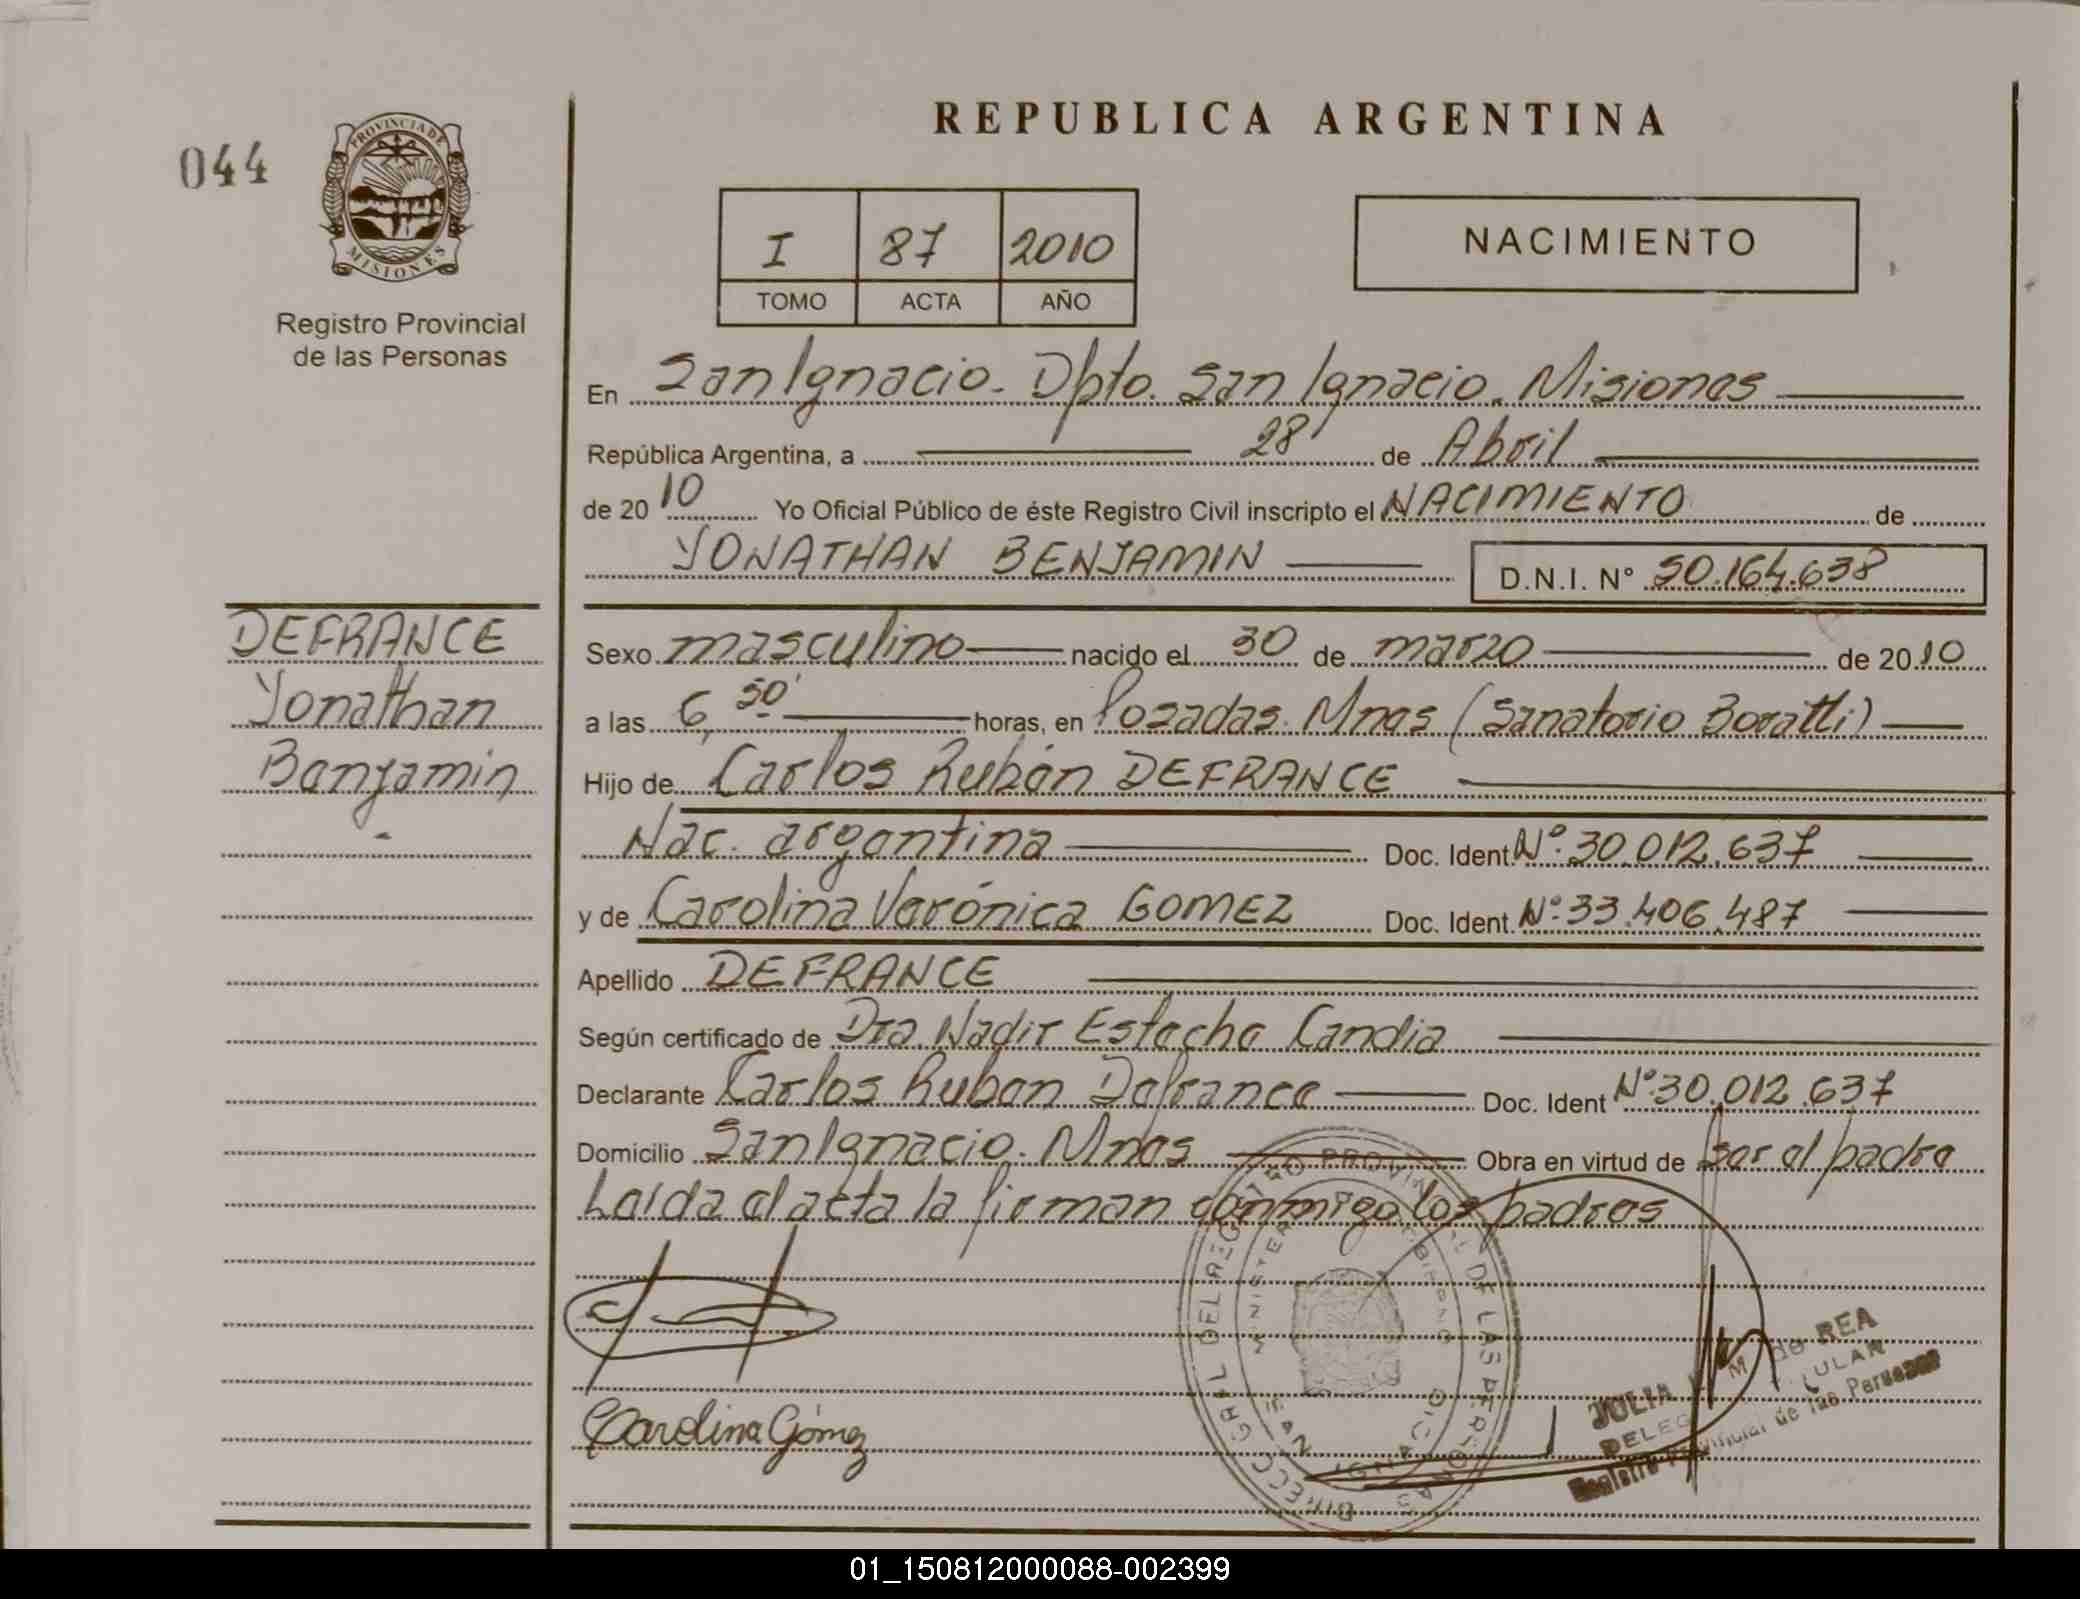 REPUBLICA ARGENTINA
044
PROVINCIA DE
MISIONES
Registro Provincial
de las Personas
I 87 2010
TOMO ACTA AÑO
NACIMIENTO
En San Ignacio. Dpto. San Ignacio. Misiones
República Argentina, a 28 de Abril
de 20 10 Yo Oficial Público de éste Registro Civil inscripto el NACIMIENTO de
YONATHAN BENJAMIN D.N.I. N° 50.164.638
DEFRANCE
Yonathan
Benjamin
Sexo masculino nacido el 30 de marzo de 20 10
a las 6,50' horas, en Posadas. Mnes (Sanatorio Boratti)
Hijo de Carlos Rubén DEFRANCE
Nac. argentina Doc. Ident. N°. 30.012.637
y de Carolina Verónica GOMEZ Doc. Ident. N°. 33.406.487
Apellido DEFRANCE
Según certificado de Dra. Nadir Esteche Candia
Declarante Carlos Ruben Defrance Doc. Ident N°. 30.012.637
Domicilio San Ignacio. Mnes Obra en virtud de ser el padre
Leída el acta la firman conmigo los padres
Carolina Gómez
JULIA M. de REA
Registro Provincial de las Personas
01_150812000088-002399